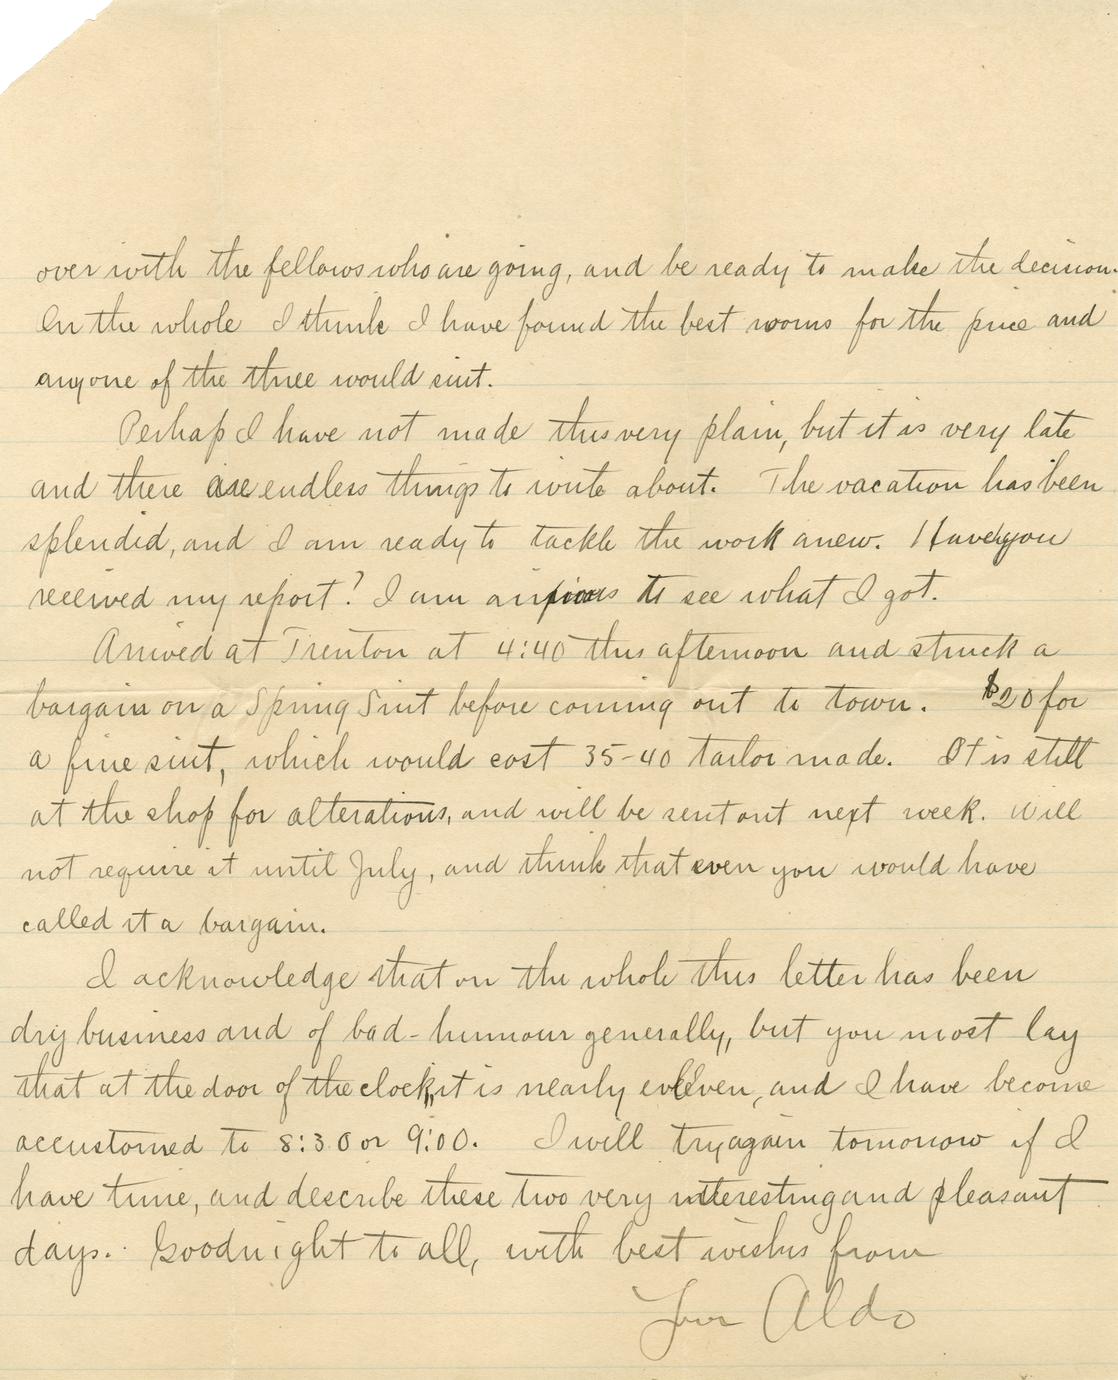 over with the fellows who are going, and be ready to make the decision.
On the whole I think I have found the best rooms for the price and
anyone of the three would suit.
Perhap I have not made this very plain, but it is very late
and there are endless things to write about. The vacation has been
splendid, and I am ready to tackle the work anew. Have you
received my report? I am anxious to see what I got.
Arrived at Trenton at 4:40 this afternoon and struck a
bargain on a Spring Suit before coming out to town. $20 for
a fine suit, which would cost 35-40 tailor made. It is still
at the shop for alterations, and will be sent out next week. Will
not require it until July, and think that even you would have
called it a bargain.
I acknowledge that on the whole this letter has been
dry business and of bad-humour generally, but you most lay
that at the door of the clock, it is nearly eleven, and I have become
accustomed to 8:30 or 9:00. I will try again tomorrow if I
have time, and describe these two very interesting and pleasant
days. Goodnight to all, with best wishes from
Your Aldo